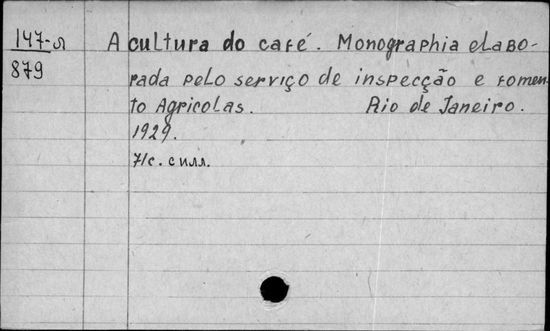 147-я
879
A cultura do café. Monographia elabo-
rada pelo serviço de inspecção e fomen-
to Agricolas. Rio de Janeiro.
1929.
71с. с илл.